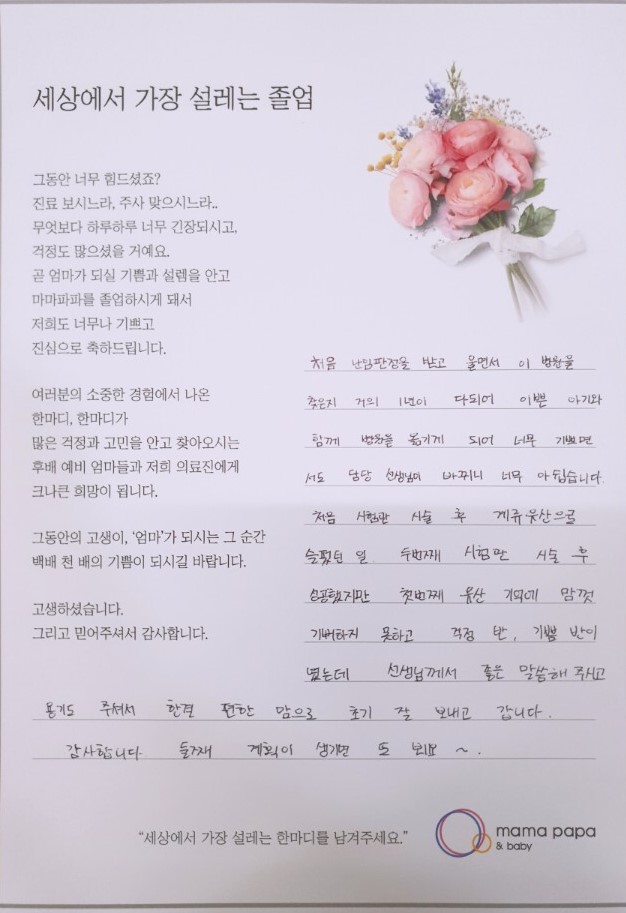 세상에서 가장 설레는 졸업
그동안 너무 힘드셨죠?
진료 보시느라, 주사 맞으시느라..
무엇보다 하루하루 너무 긴장되시고,
걱정도 많으셨을 거예요.
곧 엄마가 되실 기쁨과 설렘을 안고
마마파파를 졸업하시게 돼서
저희도 너무나 기쁘고
진심으로 축하드립니다.
여러분의 소중한 경험에서 나온
한마디, 한마디가
많은 걱정과 고민을 안고 찾아오시는
후배 예비 엄마들과 저희 의료진에게
크나큰 희망이 됩니다.
그동안의 고생이, ‘엄마’가 되시는 그 순간
백배 천 배의 기쁨이 되시길 바랍니다.
고생하셨습니다.
그리고 믿어주셔서 감사합니다.
처음 난임판정을 받고 울면서 이 병원을
찾은지 거의 1년이 다되어 이쁜 아기와
함께 병원을 옮기게 되어 너무 기쁘면
서도 담당 선생님이 바뀌니 너무 아쉽습니다.
처음 시험관 시술 후 계류유산으로
슬펐던 일 두번째 시험관 시술 후
성공했지만 첫번째 유산 기억에 맘껏
기뻐하지 못하고 걱정 반, 기쁨 반이
였는데 선생님께서 좋은 말씀해 주시고
용기도 주셔서 한결 편한 맘으로 초기 잘 보내고 갑니다.
감사합니다 둘째 계획이 생기면 또 봬요 ~.
“세상에서 가장 설레는 한마디를 남겨주세요.”
mama papa
& baby